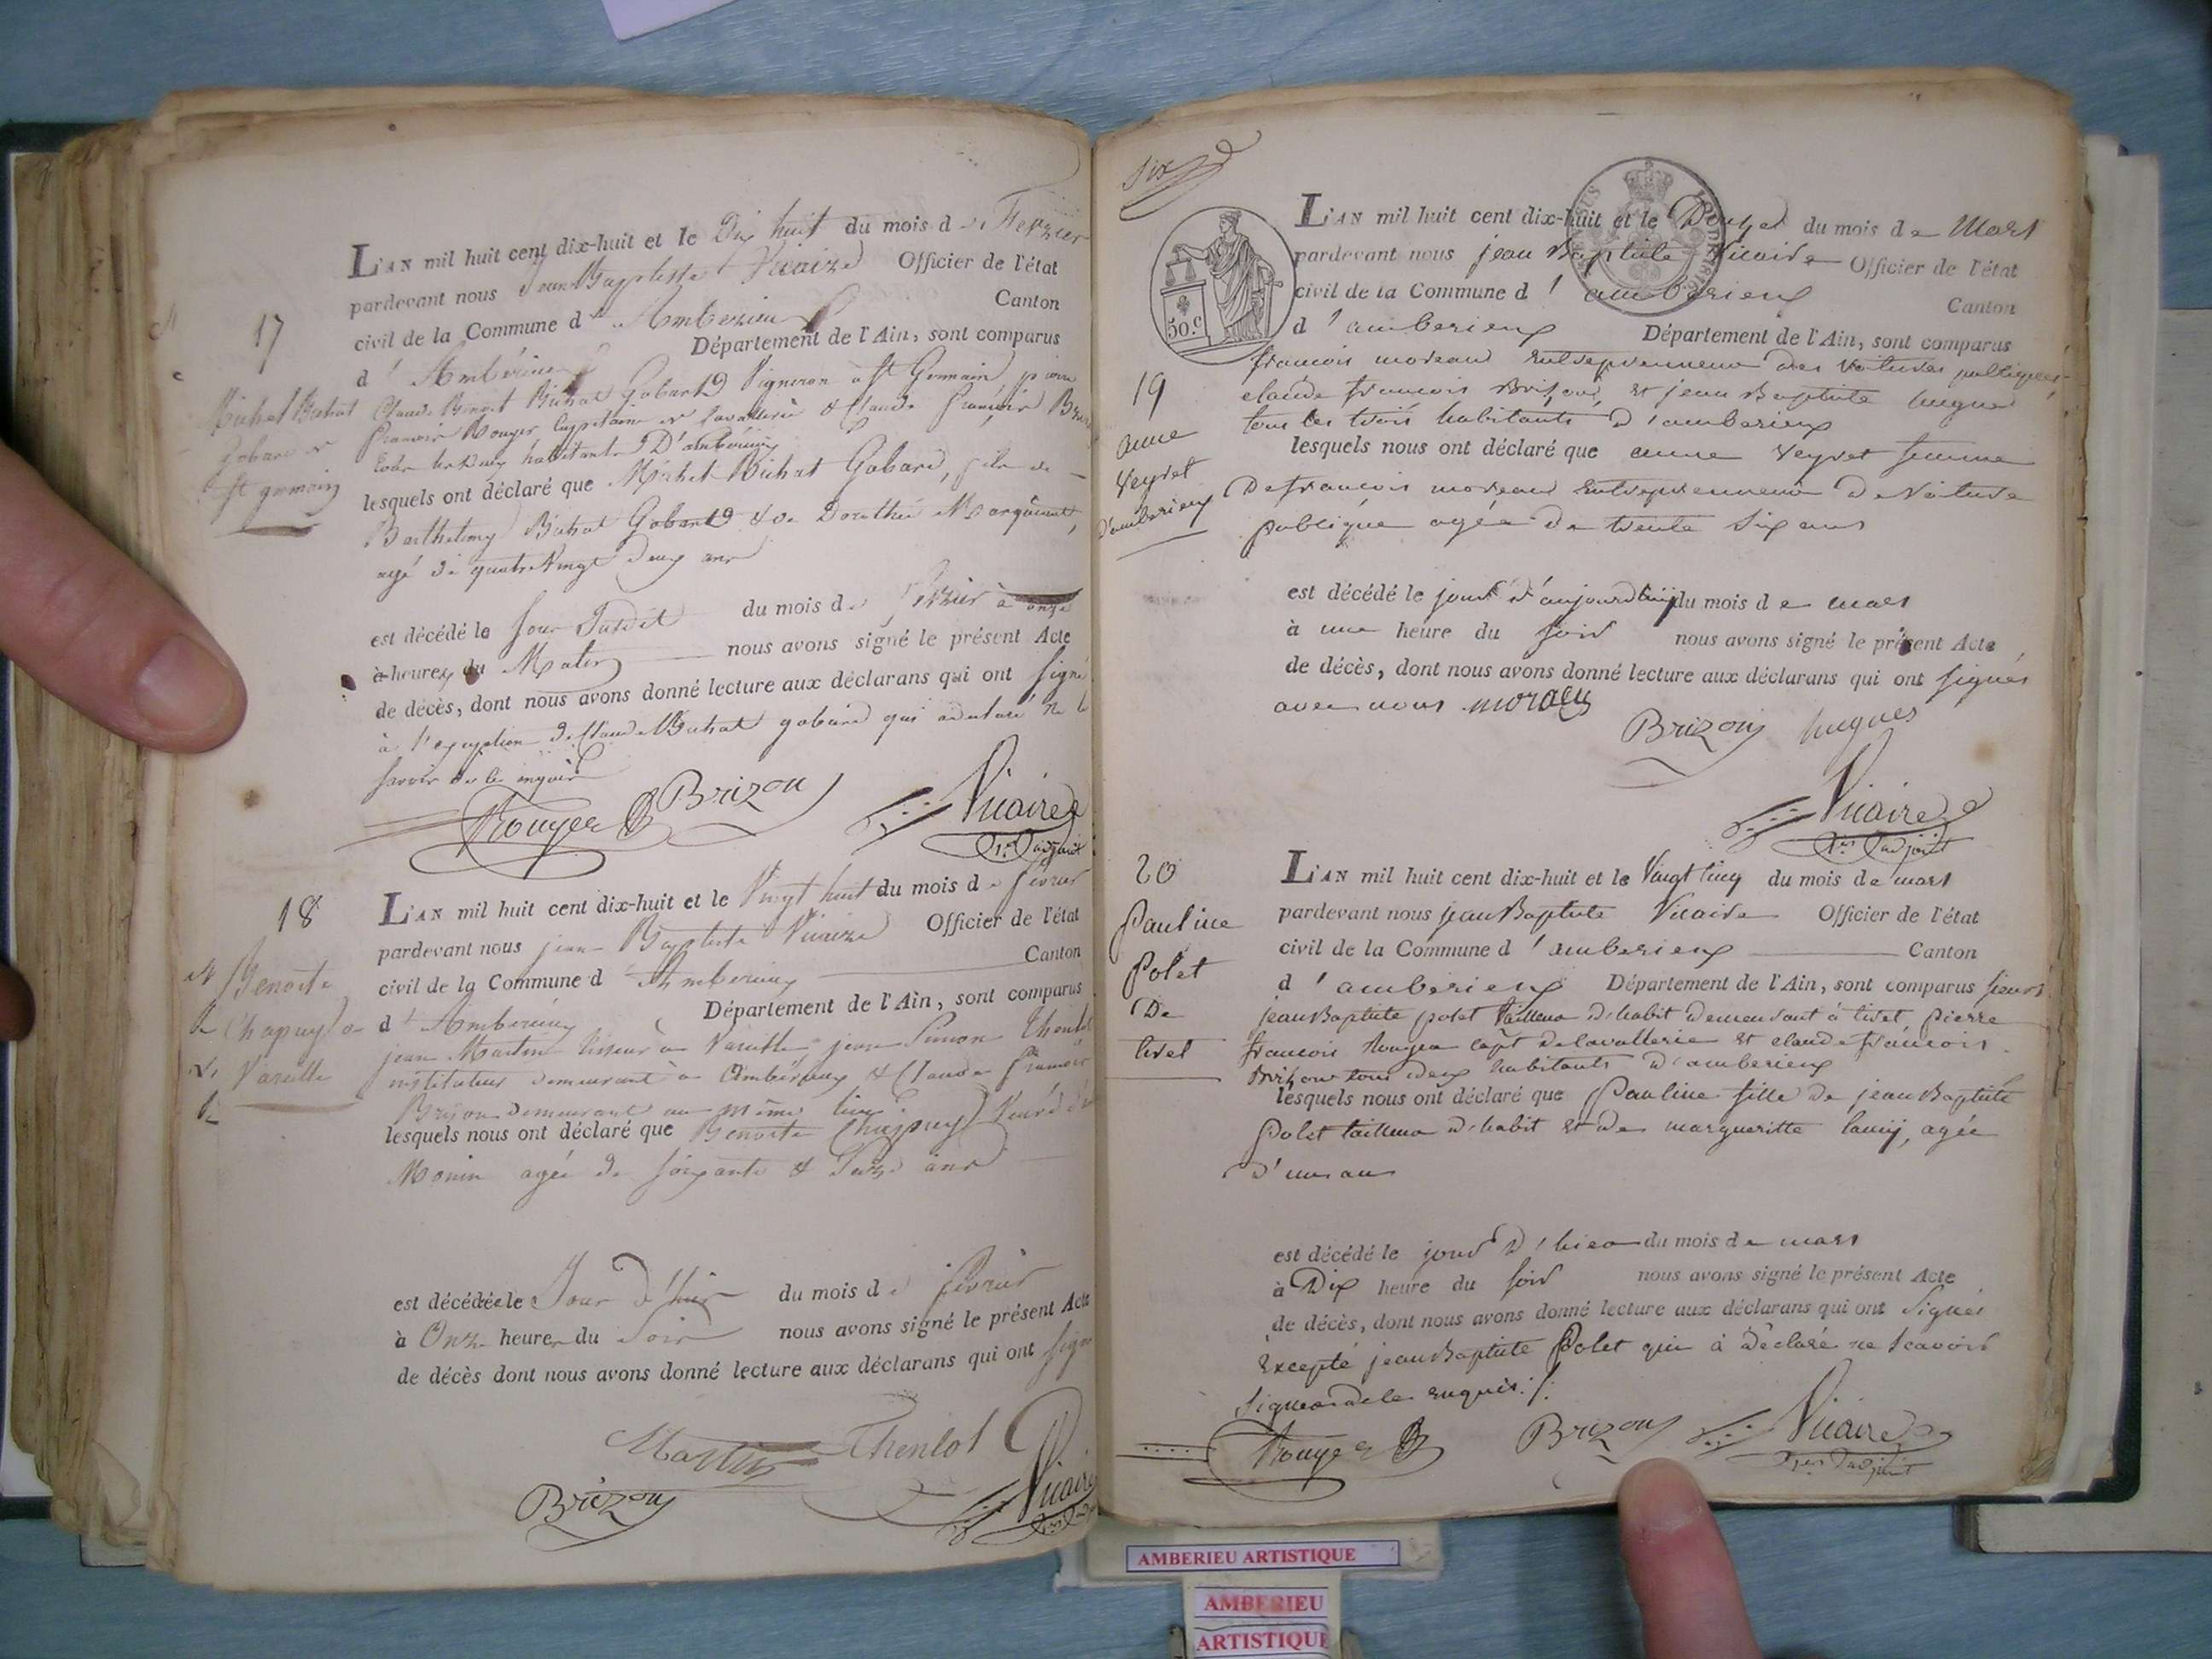 17
Michel Buhat
Gobard de
St germain
L'AN mil huit cent dix-huit et le Dix huit du mois de Fevrier
pardevant nous Jean Baptiste Vicaire Officier de l'état
civil de la Commune d' Amberieux Canton
d' Ambérieux Département de l'Ain, sont comparus
Claude Benoit Buhat Gobard Vigneron à St Germain pierre
francois Rouyer Capitaine de Cavallerie & Claude françois
tous les deux habitants D'ambérieux
lesquels ont déclaré que Michel Buhat Gobard, fils de
Barthelemy Buhat Gobard & de Dorothée Marquinet,
agé de quatre Vingt Deux ans
est décédé le Jour Susdit du mois de fevrier à onze
à heures du Matin nous avons signé le présent Acte
de décès, dont nous avons donné lecture aux déclarans qui ont signé
à l'exception de Claude Buhat gobard qui a declaré ne le
savoir de ce enquis
Rouyer Brizon Vicaire
1er adjoint
18
Benoite
Chapuy
de
Vareille
L'AN mil huit cent dix-huit et le Vingt huit du mois de fevrier
pardevant nous jean Baptiste Vicaire Officier de l'état
civil de la Commune d' Amberieux Canton
d' Amberieux Département de l'Ain, sont comparus
jean Martin à Vareille jean Simon Thenlot
instituteur demeurant à Ambérieux & Claude françois
Brison demeurant au même lieu
lesquels nous ont déclaré que Benoite Chapuy Veuve de
Monin agée de soixante & Seize ans
est décédée le Jour d'hier du mois de fevrier
à Onze heures du Soir nous avons signé le présent Acte
de décès dont nous avons donné lecture aux déclarans qui ont signé
Martin Thenlot
Brizon Vicaire
Six
50.c
19
anne
Veyret
d'amberieux
L'AN mil huit cent dix-huit et le Douze du mois de Mars
pardevant nous jean Baptiste Vicaire Officier de l'état
civil de la Commune d' amberieux Canton
d' amberieux Département de l'Ain, sont comparus
francois moreau Entreprenneur des Voitures publiques
claude francois Brison, et jean Baptiste hugues
tous les trois habitants d'amberieux
lesquels nous ont déclaré que anne Veyret femme
De francois moreau Entreprenneur De Voiture
publique agée de trente Six ans
est décédé le jour d'aujourdhuy du mois de mars
à une heure du soir nous avons signé le présent Acte
de décès, dont nous avons donné lecture aux déclarans qui ont signés
avec nous moreau
Brizon hugues
Vicaire
1er adjoint
20
Pauline
Polet
De
tiret
L'AN mil huit cent dix-huit et le Vingt Cinq du mois de mars
pardevant nous jean Baptiste Vicaire Officier de l'état
civil de la Commune d' amberieux Canton
d' amberieux Département de l'Ain, sont comparus sieurs
jean Baptiste polet tailleur d'habit demeurant à tiret pierre
francois Rouyer capt de Cavallerie et claude francois
Brizon tous deux habitants d'amberieux
lesquels nous ont déclaré que Pauline fille de jean Baptiste
Polet tailleur d'habit et de margueritte, agée
D'un an
est décédé le jour d'hier du mois de mars
à Dix heure du soir nous avons signé le présent Acte
de décès, dont nous avons donné lecture aux déclarans qui ont signés
Excepté jean Baptiste Polet qui à déclaré ne scavoir
signer de ce enquis./.
Rouyer Brizon Vicaire
1er adjoint
AMBERIEU ARTISTIQUE
AMBERIEU
ARTISTIQUE